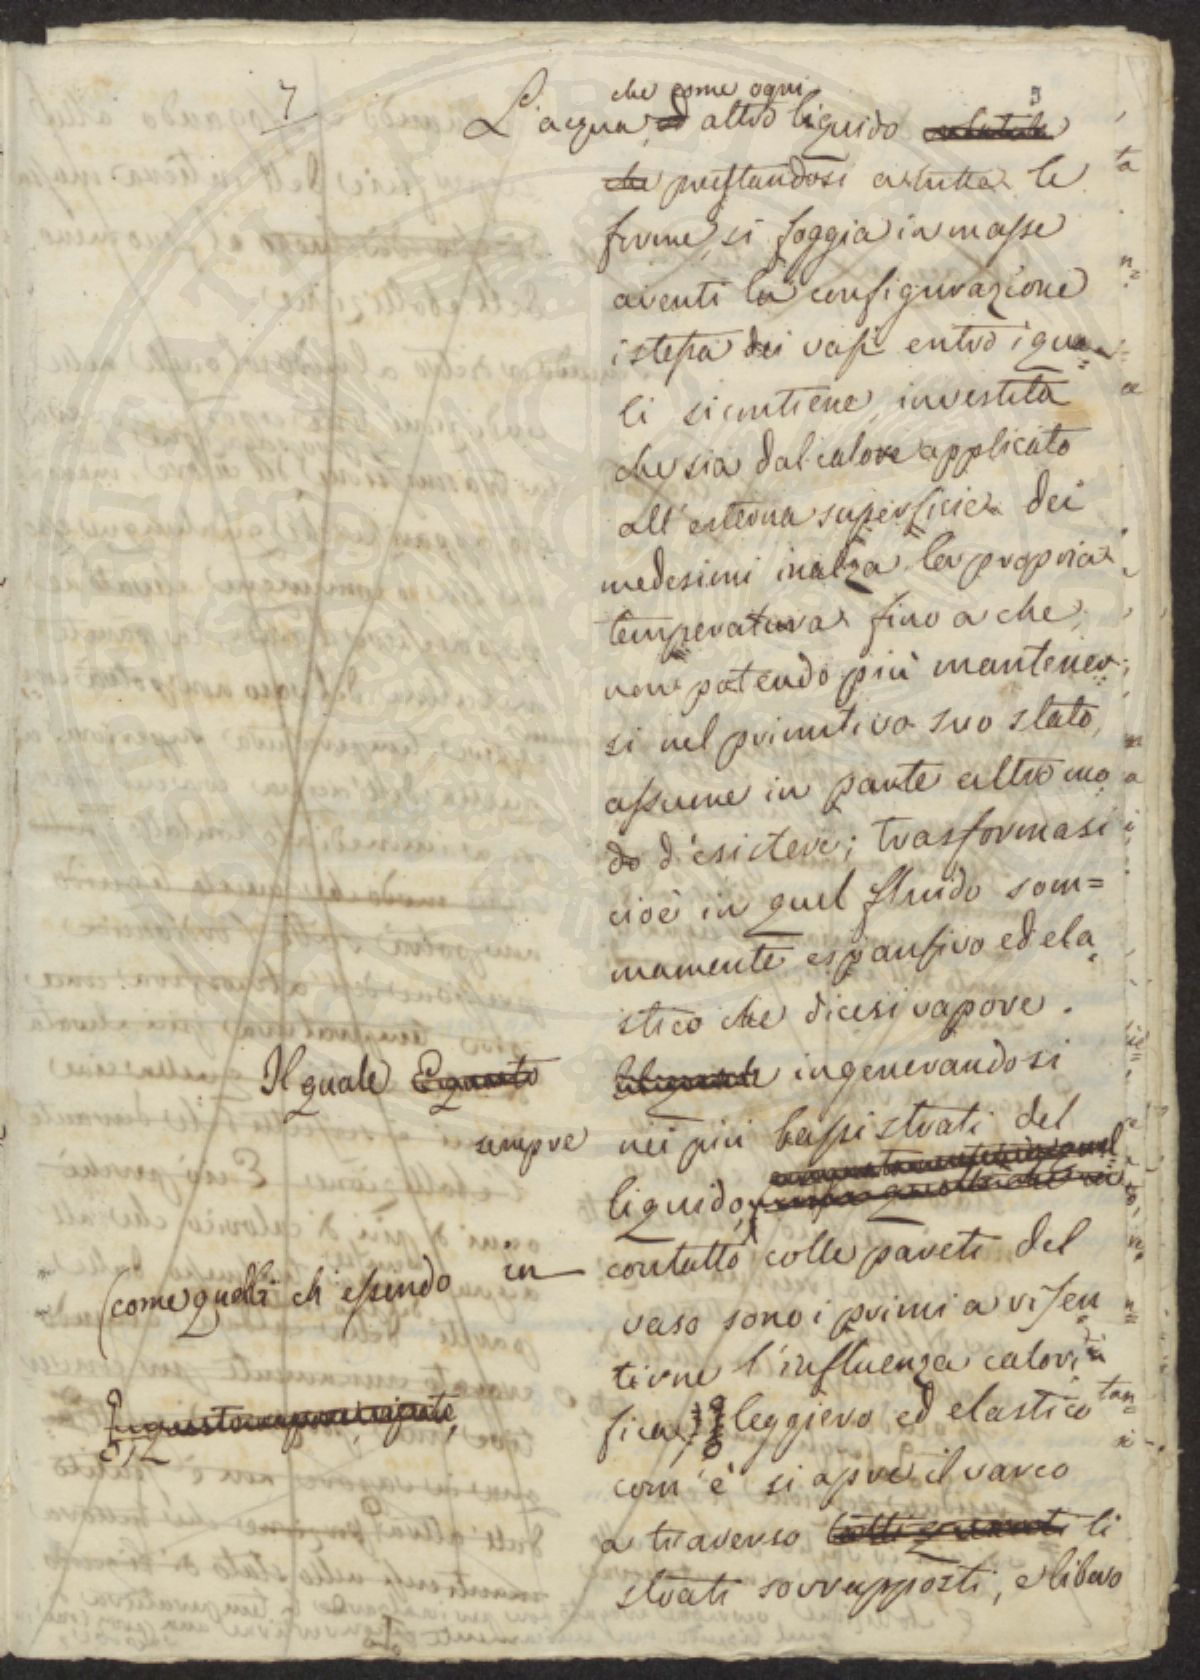 7
che come ogni
L'acqua, altro liquido
che prestandosi a tutte le
forme, si foggia in masse
aventi la configurazione
istessa dei vasi entro i qua=
li si contiene, investita
che sia dal calore applicato
all'esterna superficie dei
medesimi inalza la propria
temperatura fino a che,
non potendo più mantener=
si nel primitivo suo stato,
assume in parte altro mo
do d'esistere; trasformasi
cioè in quel fluido som=
mamente espansivo ed ela=
stico che dicesi vapore.
Il quale Equesto ingenerandosi
sempre nei più bassi strati del
liquido,
(come quelli ch'essendo in contatto colle pareti del
vaso sono i primi a risen
tirne l'influenza calori=
fica) leggiero ed elastico
com'è si apre il varco
a traverso li
strati sovrapposti, e libero